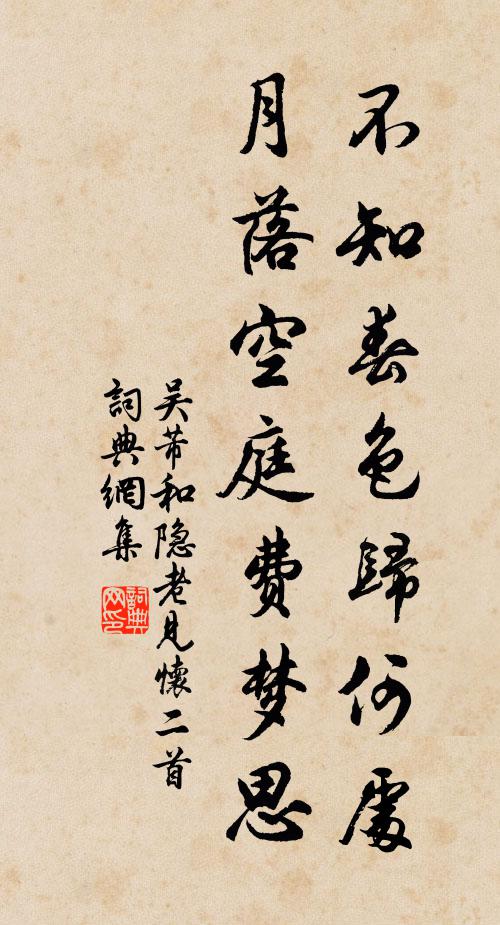 不知春色歸何處
月落空庭費梦思
吴芾和隐老見懷二首
詞典網集
詞典网印